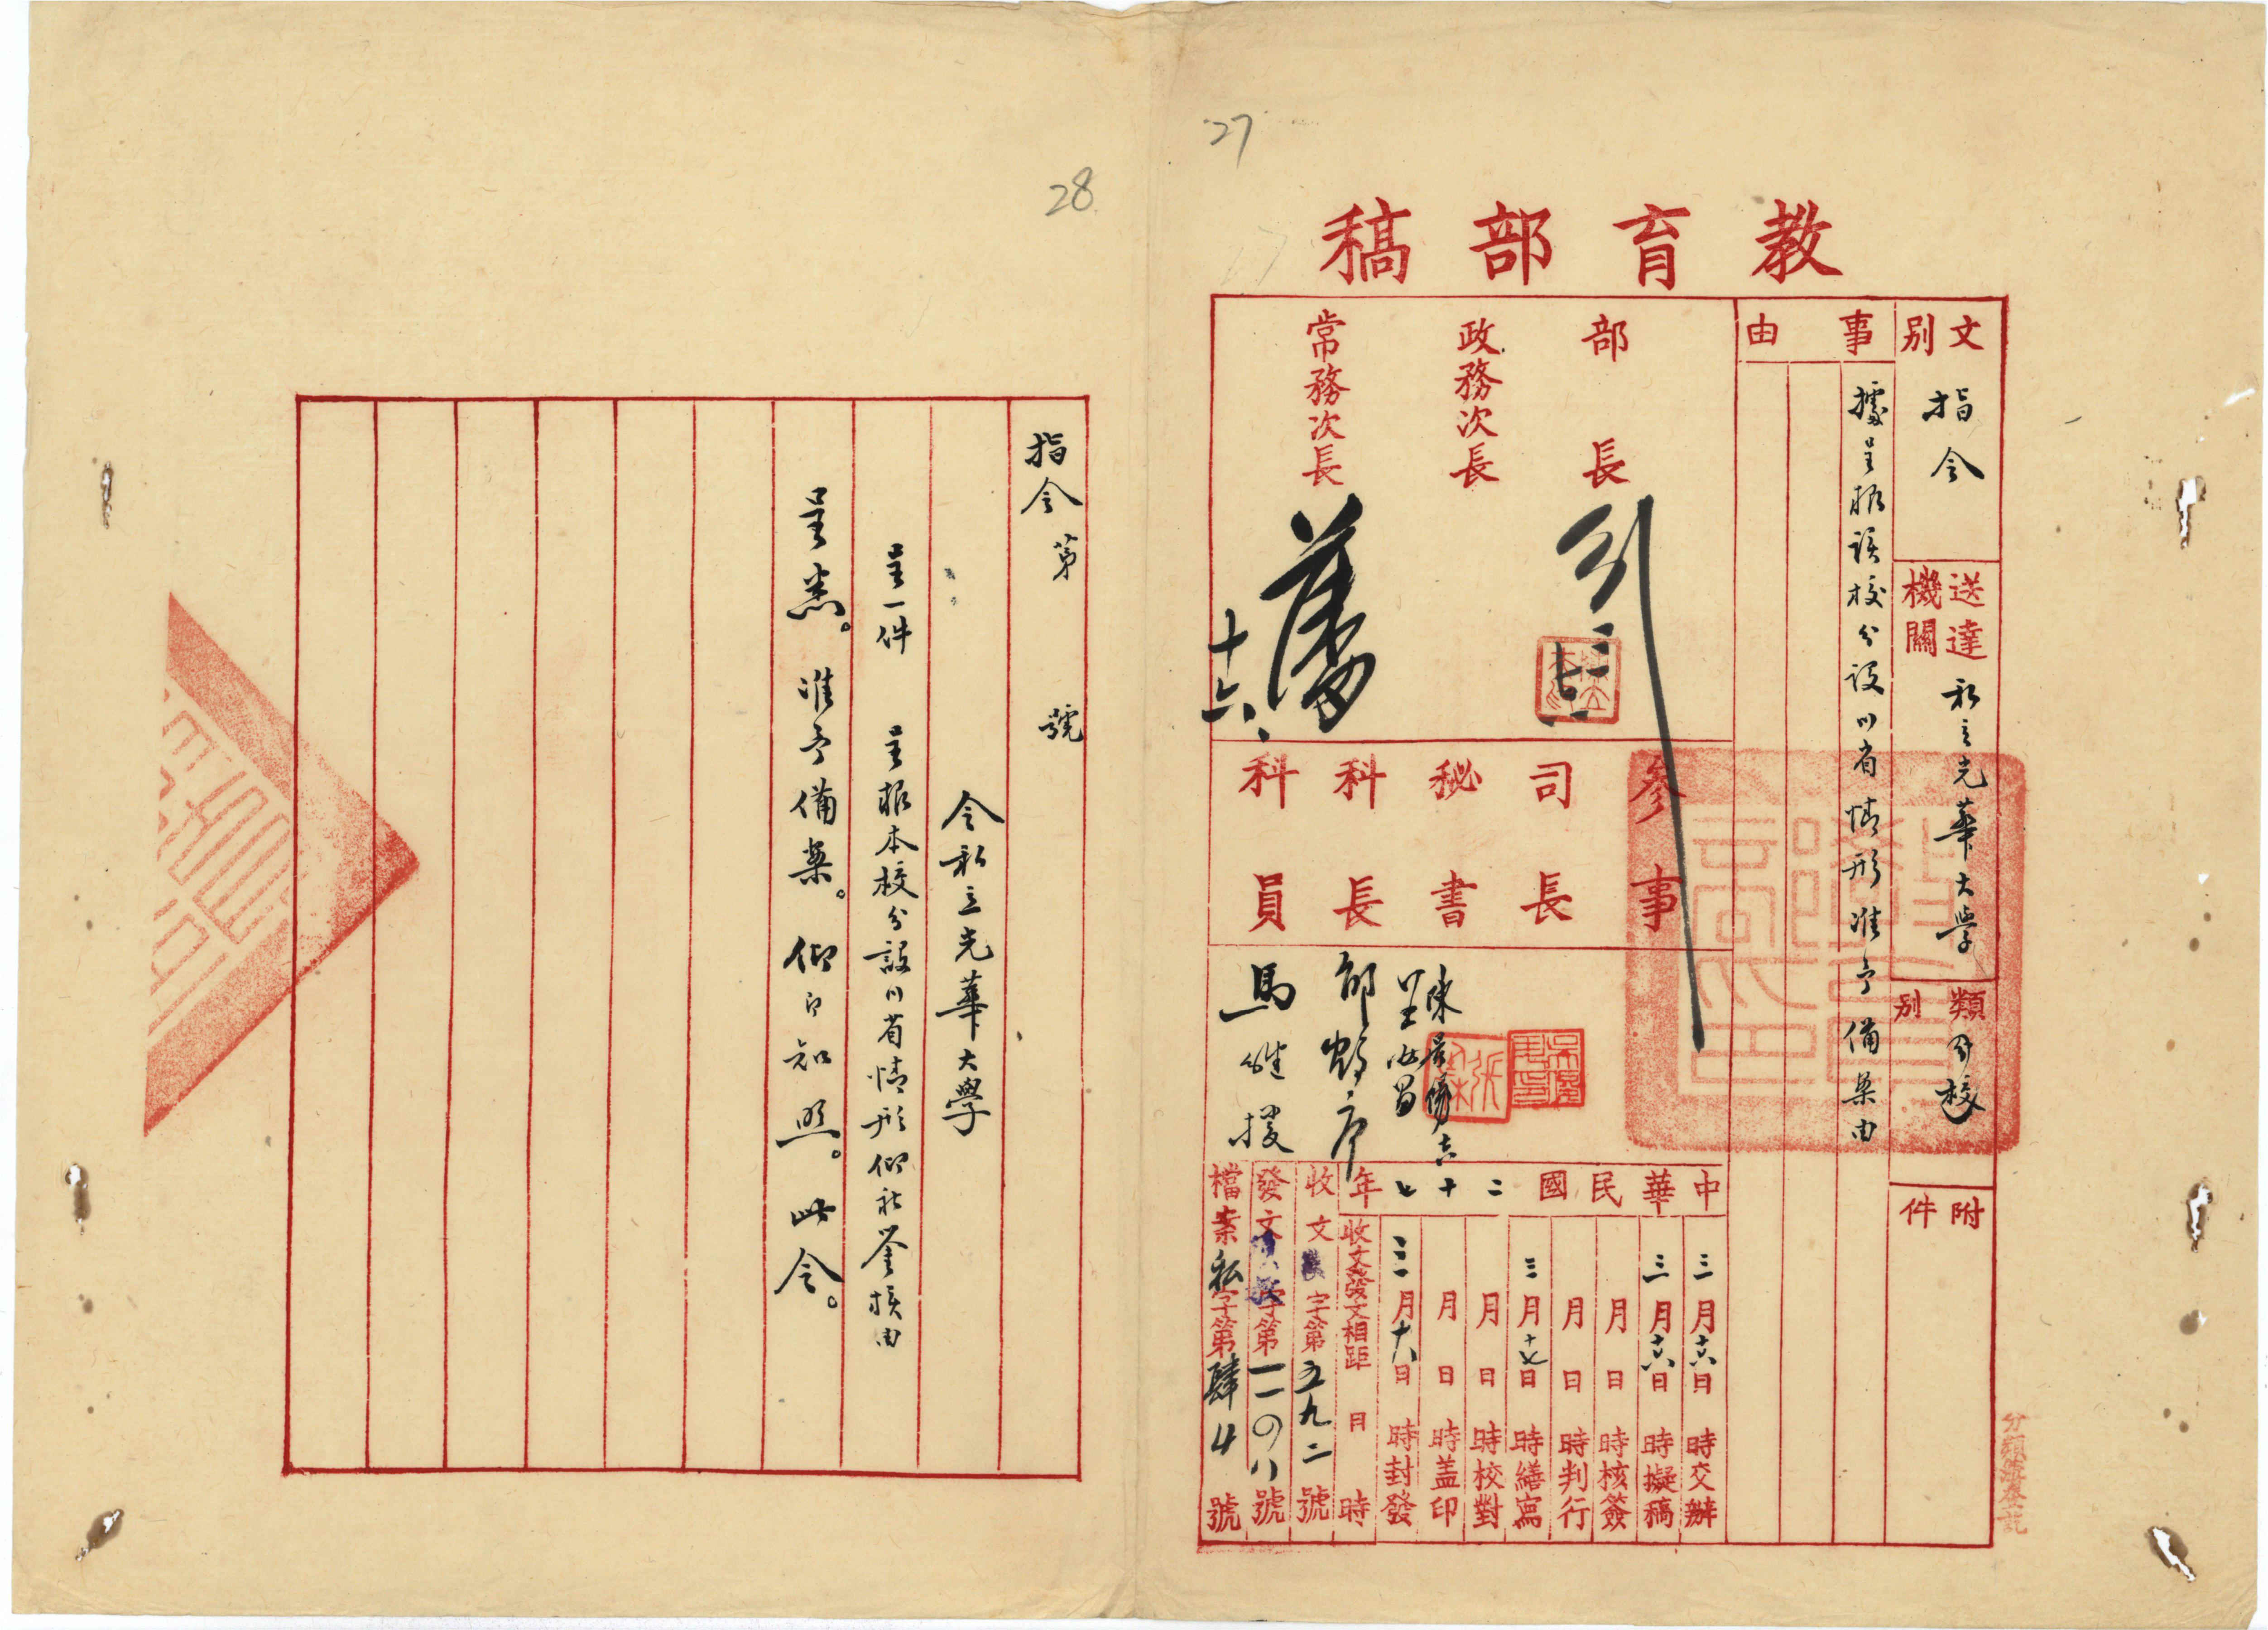 27
教育部稿
文別
指令
送達機關
私立光華大學
類別
分校
附件
事由
據呈報該校分設川省情形准予備案由
部長
政務次長
常務次長
十六、
參事
司長
秘書
科長
科員
馬繼援
中華民國二十七年
三月十六日時交辦
三月十六日時擬稿
月日時核簽
月日時判行
三月十七日時繕寫
月日時校對
月日時蓋印
三月十八日時封發
收文發文相距日時
收文字第五九二號
發文字第一一〇八號
檔案私字第肆4號
28
指令第號
令私立光華大學
呈一件 呈報本校分設川省情形仰祈鑒核由
呈悉。准予備案。仰即知照。此令。